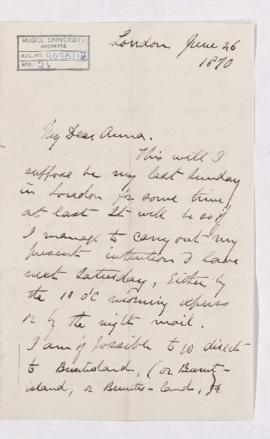 McGILL UNIVERSITY
ARCHIVES
ACC. NO.
REF.
London June 26
1890
My Dear Anna.
This will I
suppose be my last Sunday
in London for some time,
at least It will be so if
I manage to carry out my
present intention to leave
next Saturday, Either by
the 10 o'C morning express
or by the night mail.
I am if possible to go direct
to Burntisland, (or Burnt-
island, or Burnts-land,